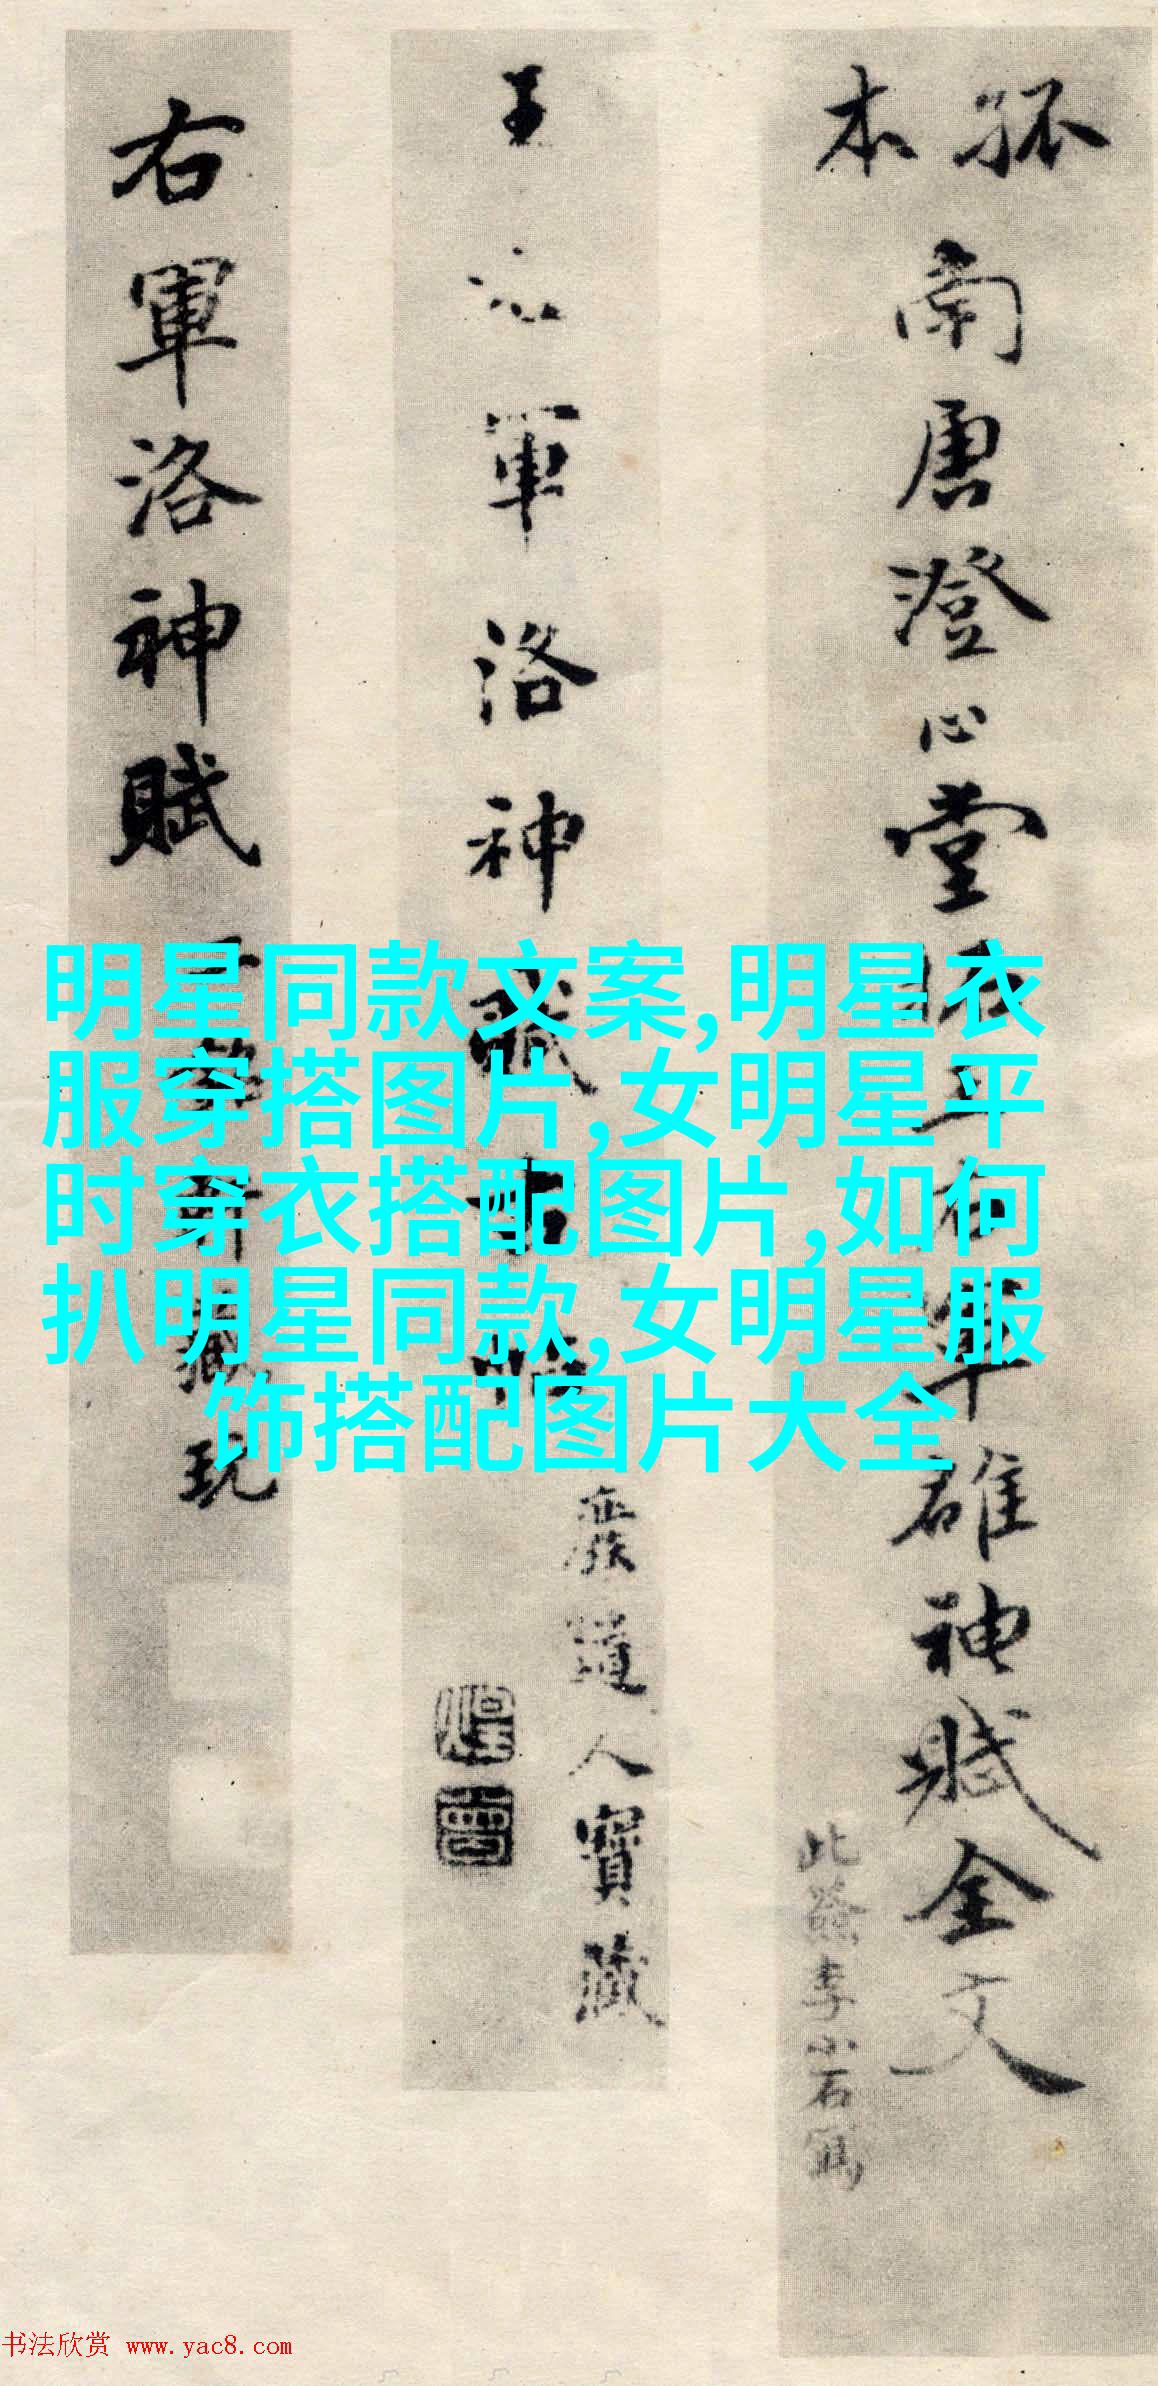 孤本
南唐澄心堂
右軍雄神賦全文
此簽李小石寫
王右軍洛神賦
廢道人寶藏
右軍洛神賦
玩
明星同款文案,明星衣
服穿搭图片,女明星平
时穿衣搭配图片,如何
扒明星同款,女明星服
饰搭配图片大全
书法欣赏 www.yac8.com